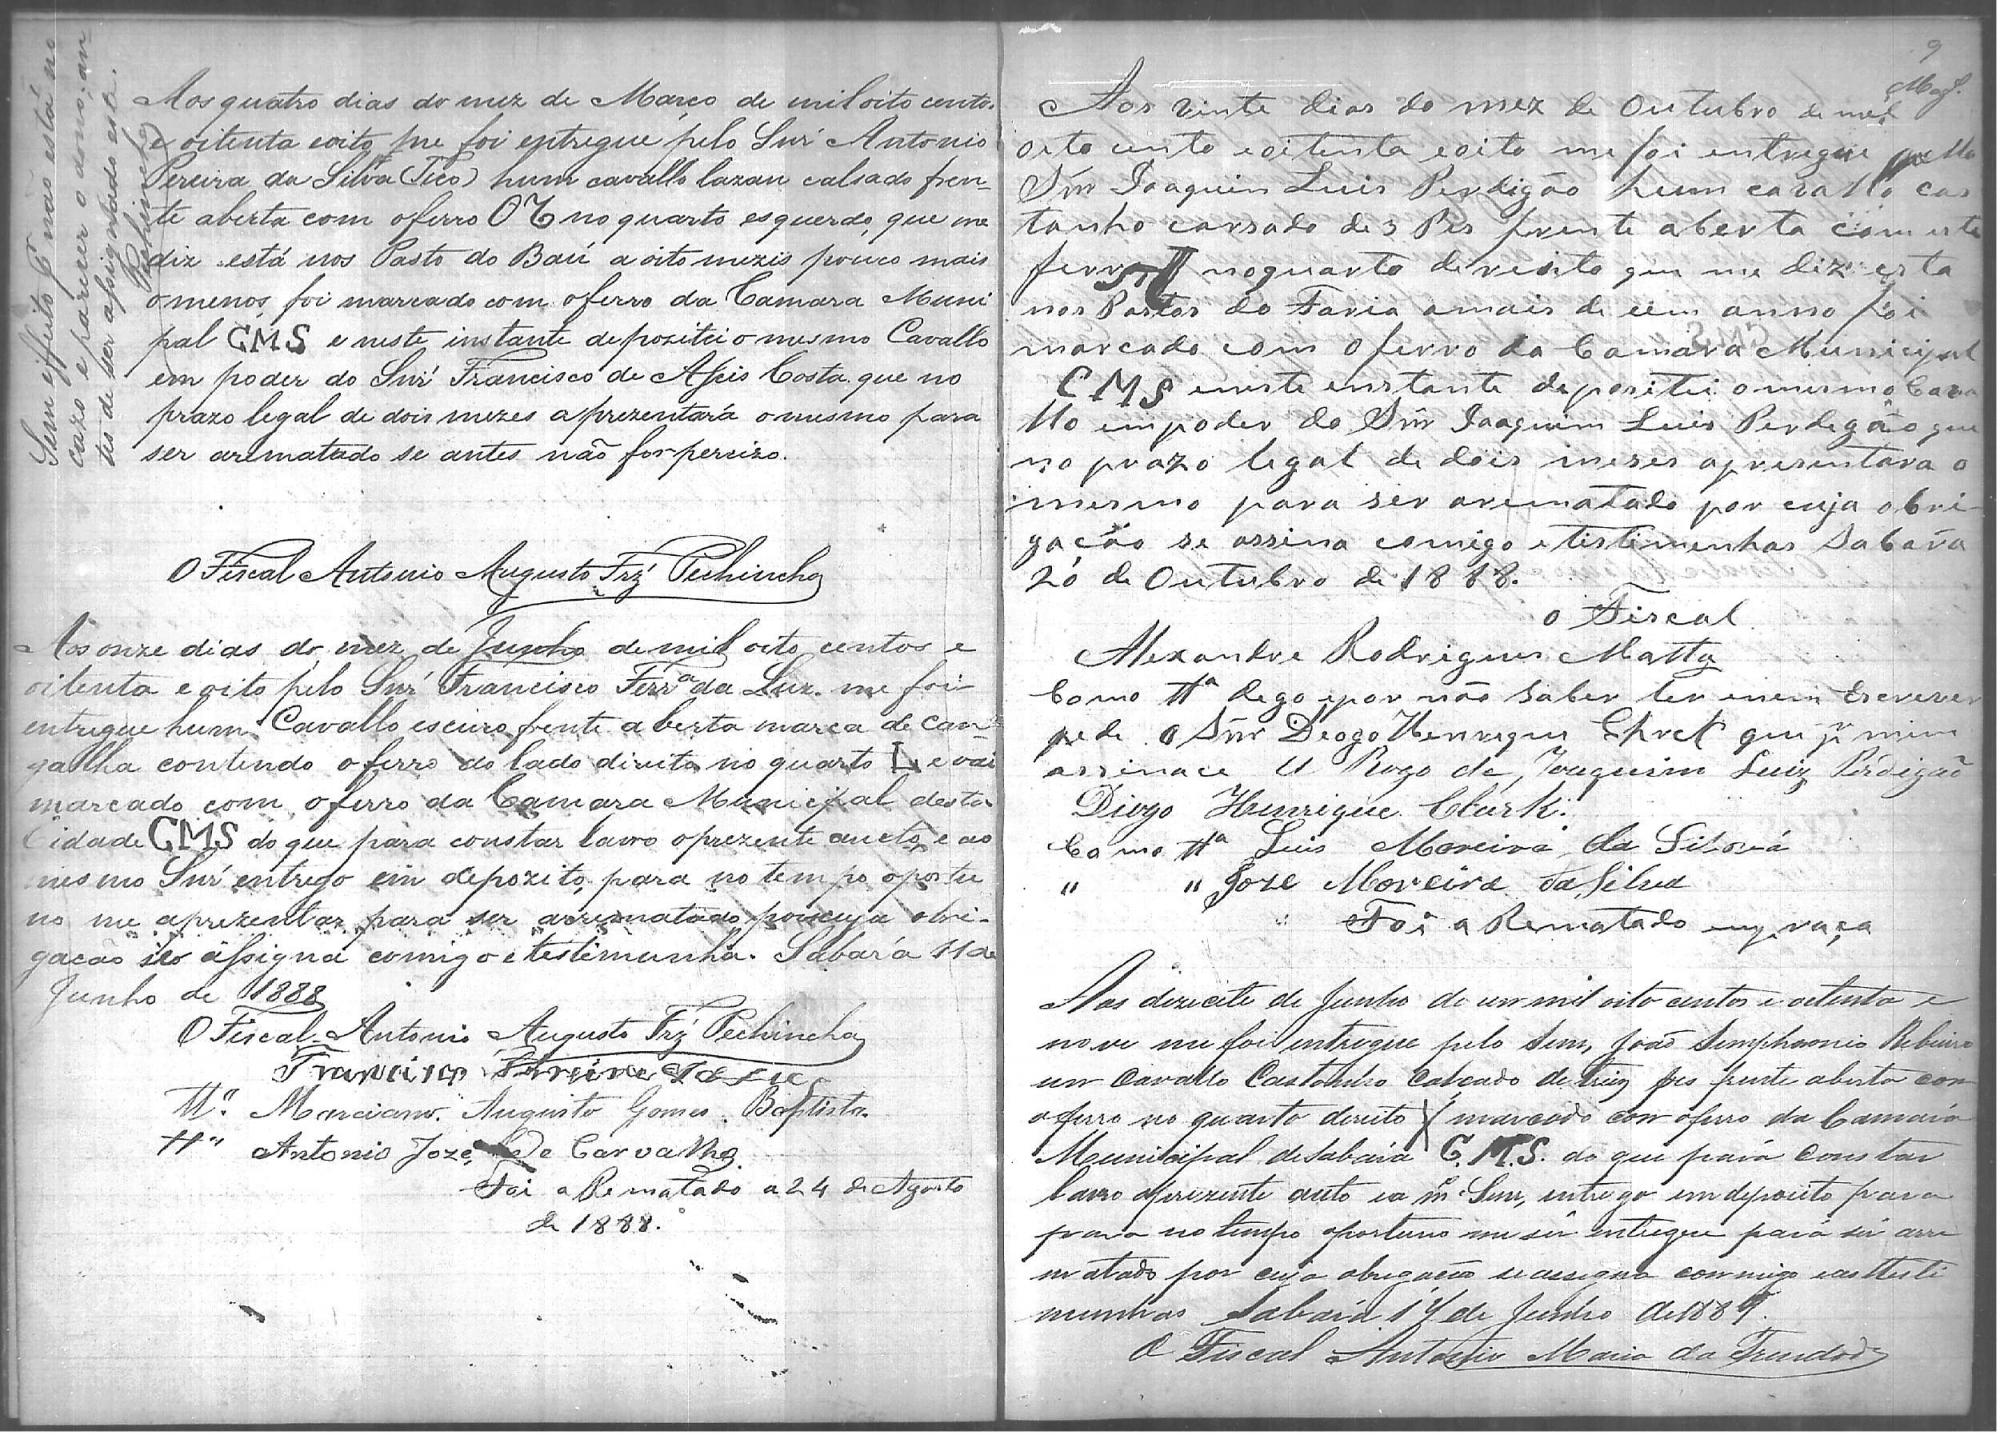 Sem effeito pr. não está no
cazo e parecer o dono, an
tes de ser assignado este.
Pechincha
Aos quatro dias do mez de Março de mil oito centos
e oitenta eoito me foi entregue pelo Snr Antonio
Pereira da Silva (Tico) hum cavallo lazan calsado fren-
te aberta com oferro no quarto esquerdo, que me
diz está nos Pasto do Baú a oito mezis pouco mais
omenos, foi marcado com oferro da Camara Muni
pal CMS e neste instante depozitei o mesmo Cavallo
em poder do Snr Francisco de Assis Costa que no
prazo legal de dois mezes aprezentará o mesmo para
ser arematado se antes não for percizo.
O Fiscal Antonio Augusto Frz Pechincha
Aos onze dias do mez de Junho de mil oito centos e
oitenta e oito pelo Snr Francisco Ferra da Luz. me foi
entregue hum Cavallo escuro frente aberta marca de can-
galha contendo oferro do lado direito no quarto L e vai
marcado com oferro da Camara Municipal desta
Cidade CMS do que para constar lavro oprezente aucto, e ao
mesmo Snr entrego em depozito, para no tempo oportu
no me aprezentar para ser arrematado, por cuja obri-
gacão se assigna comigo e testemunha. Sabará 11 de
Junho de 1888
O Fiscal Antonio Augusto Frz Pechincha
Francisco
Tta. Marciano Augusto Gomes Baptista
Tta Antonio Joze De Carvalho
Foi a Rematado a 24 de Agosto
de 1888.
9
Aos vinte dias do mez de Outubro de mil
oito cento eoitenta eoito me foi entregue pello
Snr Joaquim Luis Perdigão hum cavallo cas
tanho carsado de 3 Pes frente aberta com este
ferro noquarto dereito que me diz esta
nos Pastos do Faria amais de um anno foi
marcado com oferro da Camara Municipal
CMS eneste enstante depositei omesmo Cava
llo em poder do Snr Joaquim Luis Perdegão que
no prazo legal de dois meses apresentara o
mesmo para ser arematado por cuja obri-
gação se assina comigo etestimenhas Sabara
20 de Outubro de 1888.
o Fiscal
Alexandre Rodrigues Matta
Como tta dego epor não saber ler enem Escrever
pede o Snr Diogo Henrique que pr mim
assinace A Rogo de Joaquim Luiz Perdigão
Diogo Henrique Clark.
Como tta Luis Moreira da Silva
" " Joze Moreira da Silva
Foi a Rematado em praça
Aos dezecete de Junho de um mil oito centos e oitenta e
nove me foi entregue pelo Snr, João Simphronio Ribeiro
um Cavallo Castanho Calcado de trez pes frente aberta com
oferro no quarto direito marcado com oferro da Camara
Municipal de Sabará C.M.S. do que para constar
lavro aprezente auto e ao mo Snr, entrego em deposito para
para no tempo oportuno me ser entregue para ser arre
matado por cuja obrigação se assigna commigo e as testi
munhas Sabará 17 de Junho de 1889.
O Fiscal Antonio Maria da Trindade